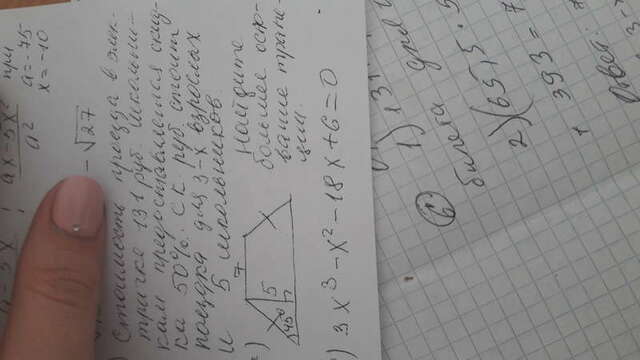 a - 5x ; ax-5x² при
a² a = -75
x = -10
- √27
Стоимость проезда в элек-
тричке 131 руб. Школьни-
кам предоставляется скид-
ка 50%. Ск. руб. стоит
поездка для 3-х взрослых
и 5 школьников.
7
5
45°
Найдите
большее осно-
вание трапе-
ции.
) 3x³ - x² - 18x + 6 = 0
6
1) 131
билета для
2) (65,5 · 5
+ 393 = 7
Ответ:
3-х